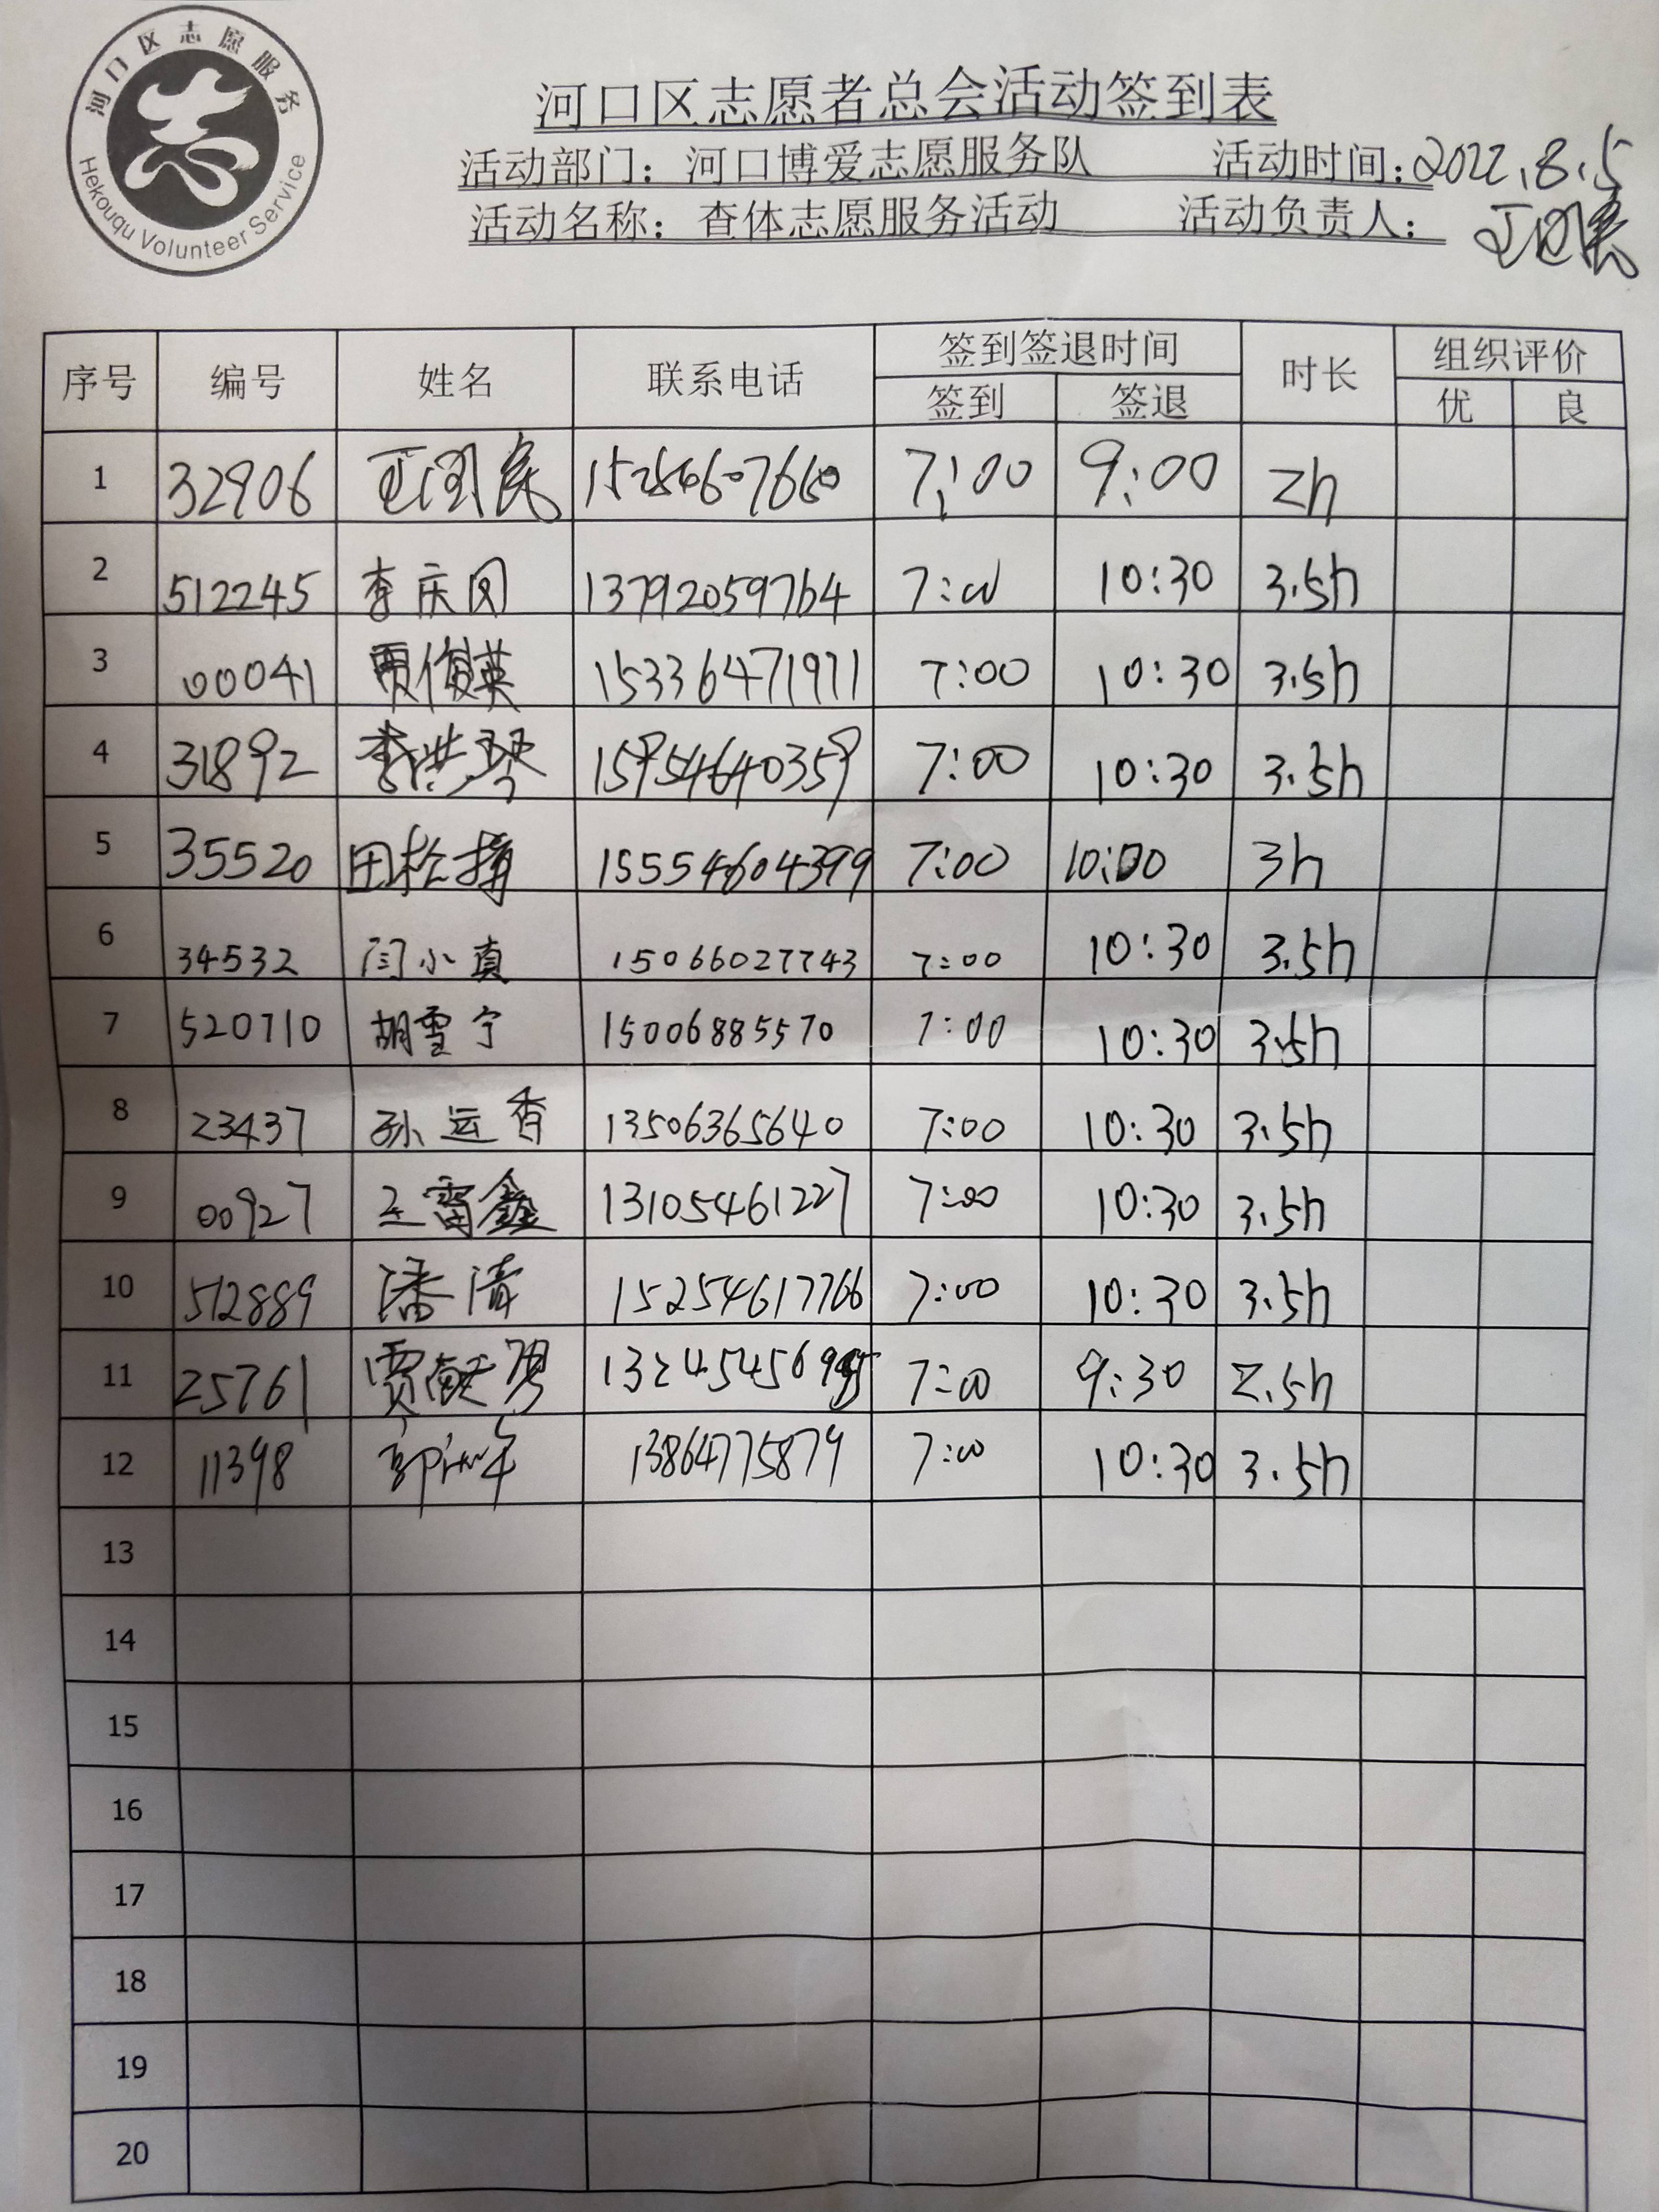 河口区志愿服务
Hekouqu Volunteer Service
河口区志愿者总会活动签到表
活动部门：河口博爱志愿服务队 活动时间：2022.8.5
活动名称：查体志愿服务活动 活动负责人：
序号 编号 姓名 联系电话 签到签退时间 时长 组织评价
签到 签退 优 良
1 32906 15254607660 7:00 9:00 2h
2 512245 李庆因 13792059764 7:00 10:30 3.5h
3 00041 贾俊英 15336471971 7:00 10:30 3.5h
4 31892 李洪琴 15954640359 7:00 10:30 3.5h
5 35520 田松 15554604399 7:00 10:00 3h
6 34532 闫小真 15066027743 7:00 10:30 3.5h
7 520710 胡雪宁 15006885570 7:00 10:30 3.5h
8 23437 孙运香 13506365640 7:00 10:30 3.5h
9 00927 王雷鑫 13105461227 7:00 10:30 3.5h
10 512889 潘清 15254617766 7:00 10:30 3.5h
11 25761 贾献 7:00 9:30 2.5h
12 11398 郭 13864775879 7:00 10:30 3.5h
13
14
15
16
17
18
19
20